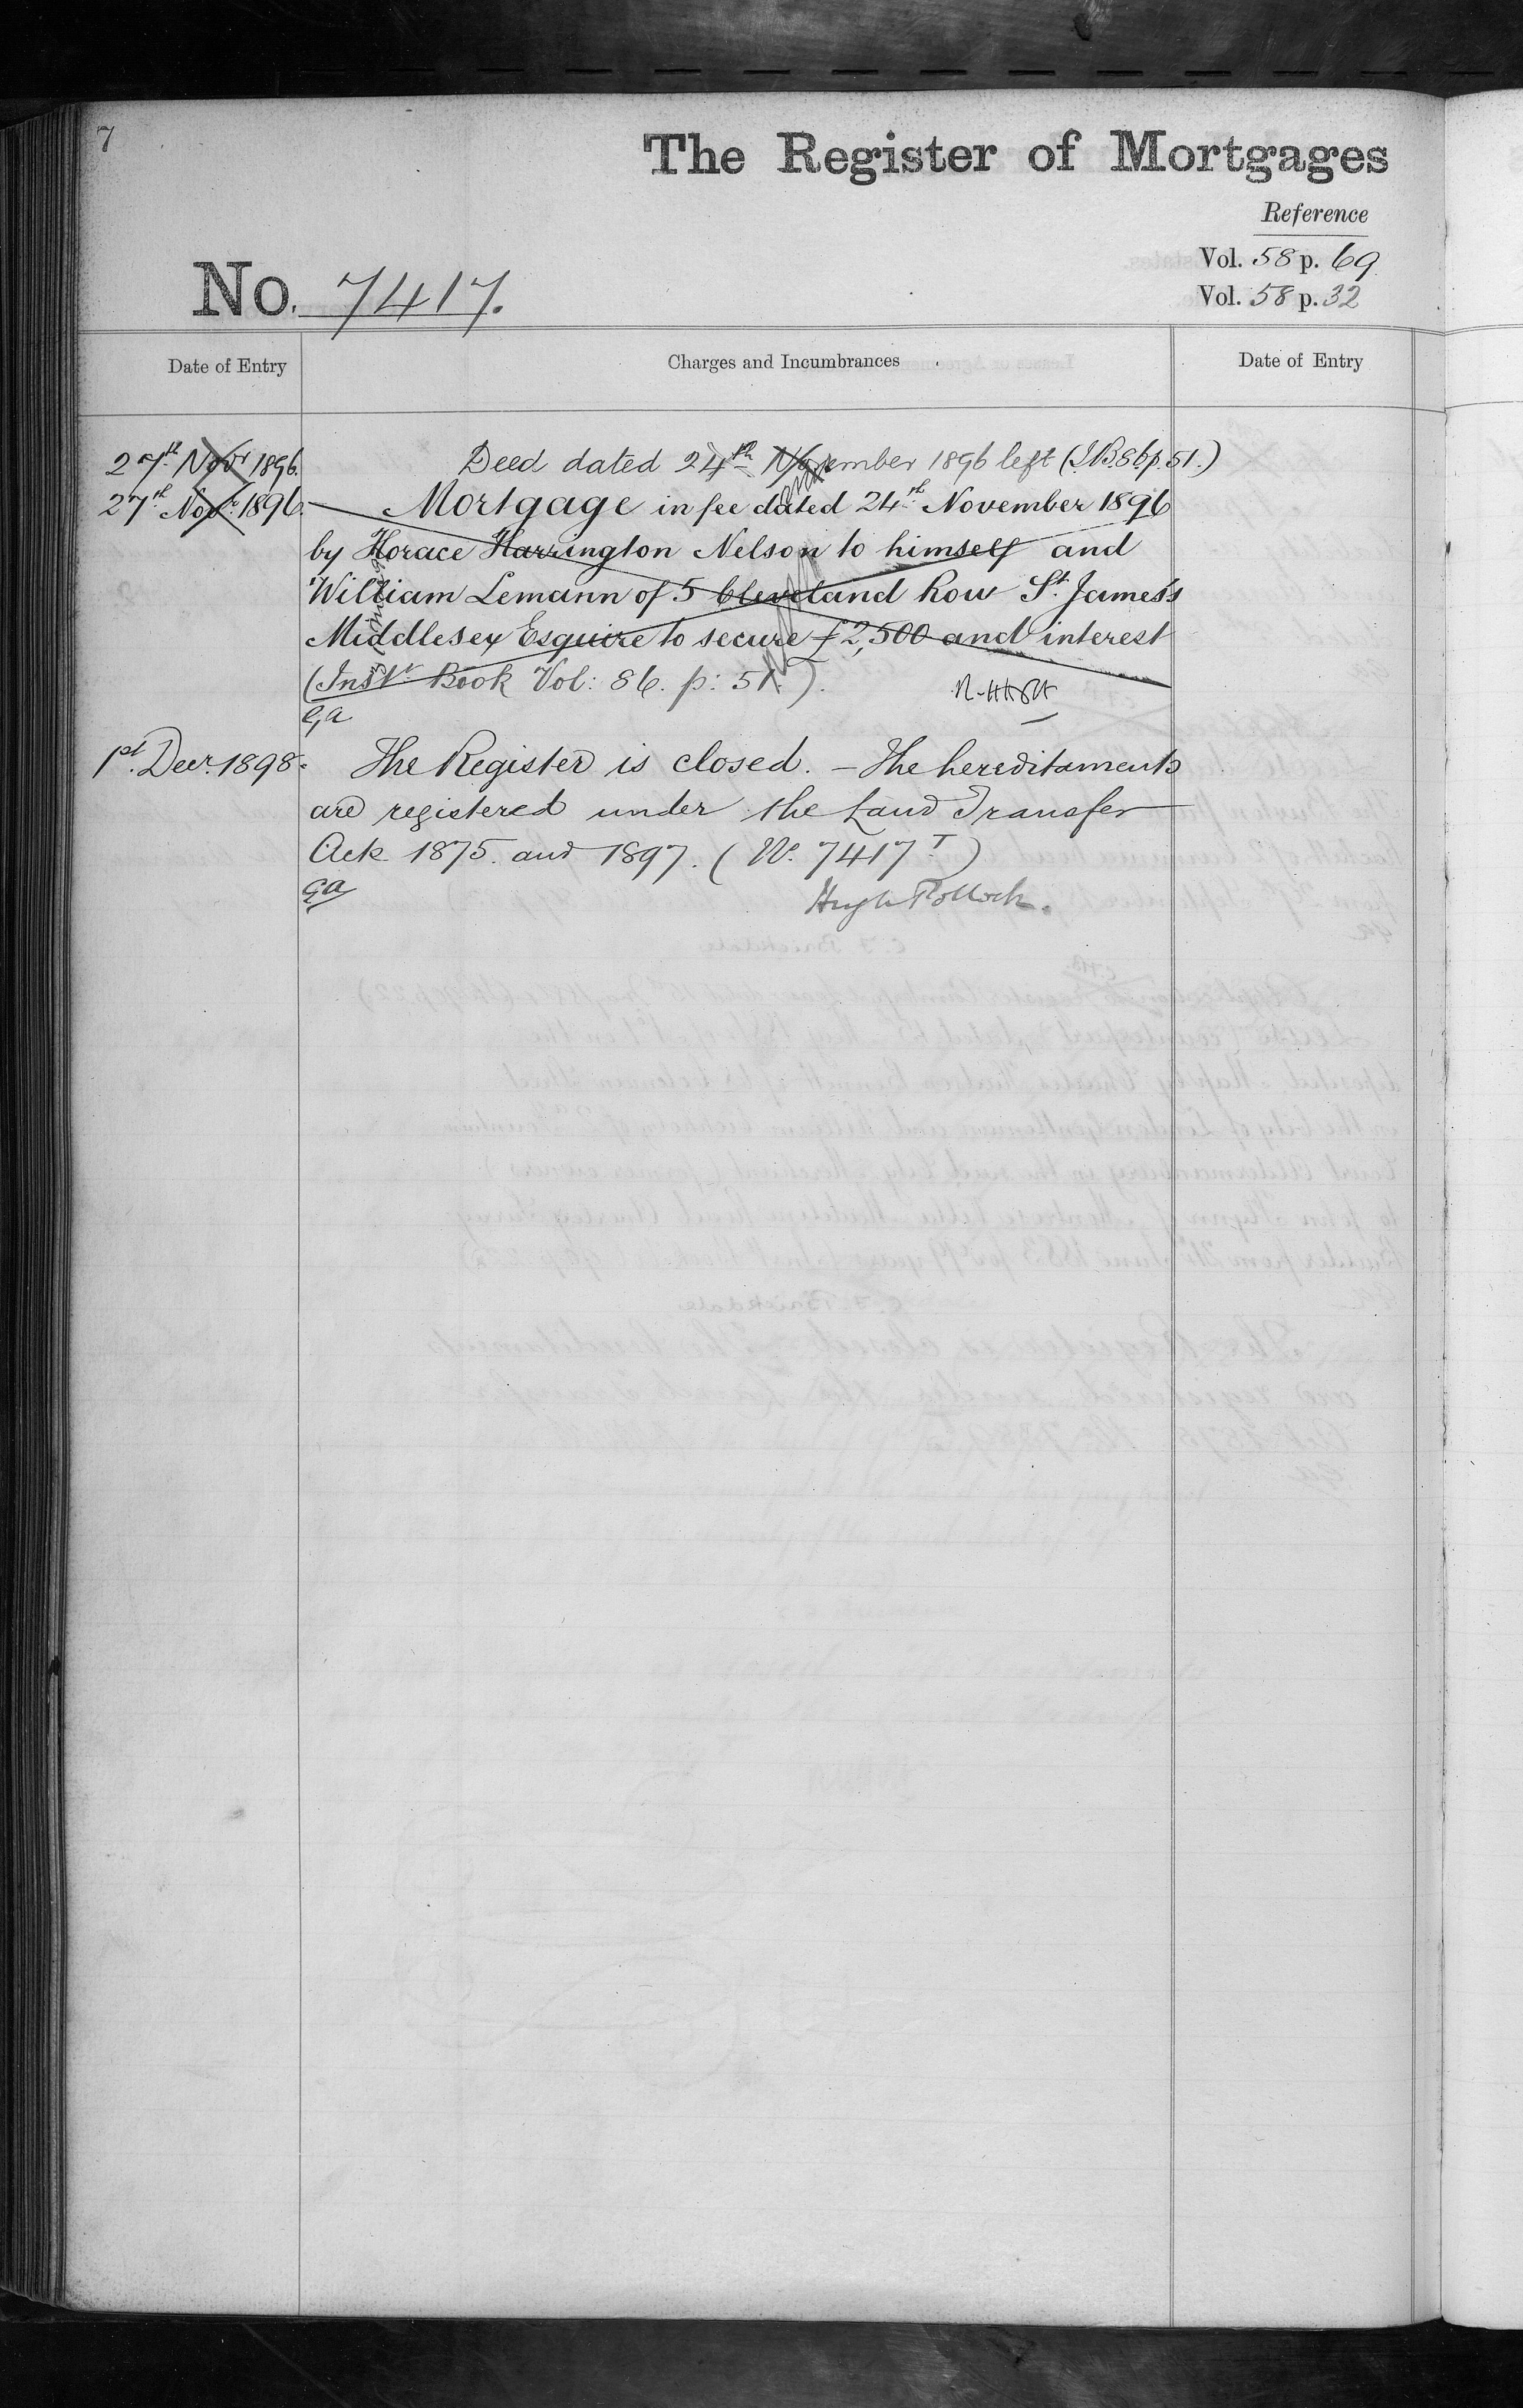 7
The Register of Mortgages
Reference
Vol. 58 p. 69
Vol. 58 p. 32
No. 7417.
Date of Entry
Charges and Incumbrances
Date of Entry
27th Novr 1896.
Deed dated 24th November 1896 left (I.B. 86 p. 51.)
27th Novr 1896.
Mortgage in fee dated 24th November 1896
by Horace Harrington Nelson to himself and
William Lemann of 5 Cleveland Row St. James's
Middlesex Esquire to secure £2,500 and interest
(Instt Book Vol: 86. p: 51.).
1st. Decr. 1898.
The Register is closed. — The hereditaments
are registered under the Land Transfer
Acts 1875. and 1897. (No. 7417T)
Hugh Pollock.